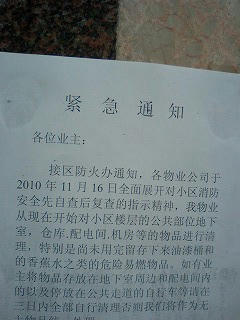 紧急通知
各位业主：
接区防火办通知，各物业公司于
2010年11月16日全面展开对小区消防
安全先自查后复查的指示精神，我物业
从现在开始对小区楼层的公共部位地下
室，仓库.配电间.机房等的物品进行清
理，特别是尚未用完留存下来油漆桶和
的香蕉水之类的危险易燃物品。如有业
主将物品存放在地下室周边和配电间内
的以及停放在公共走道的自行车等请在
三日内全部自行清理否则我们将作为无